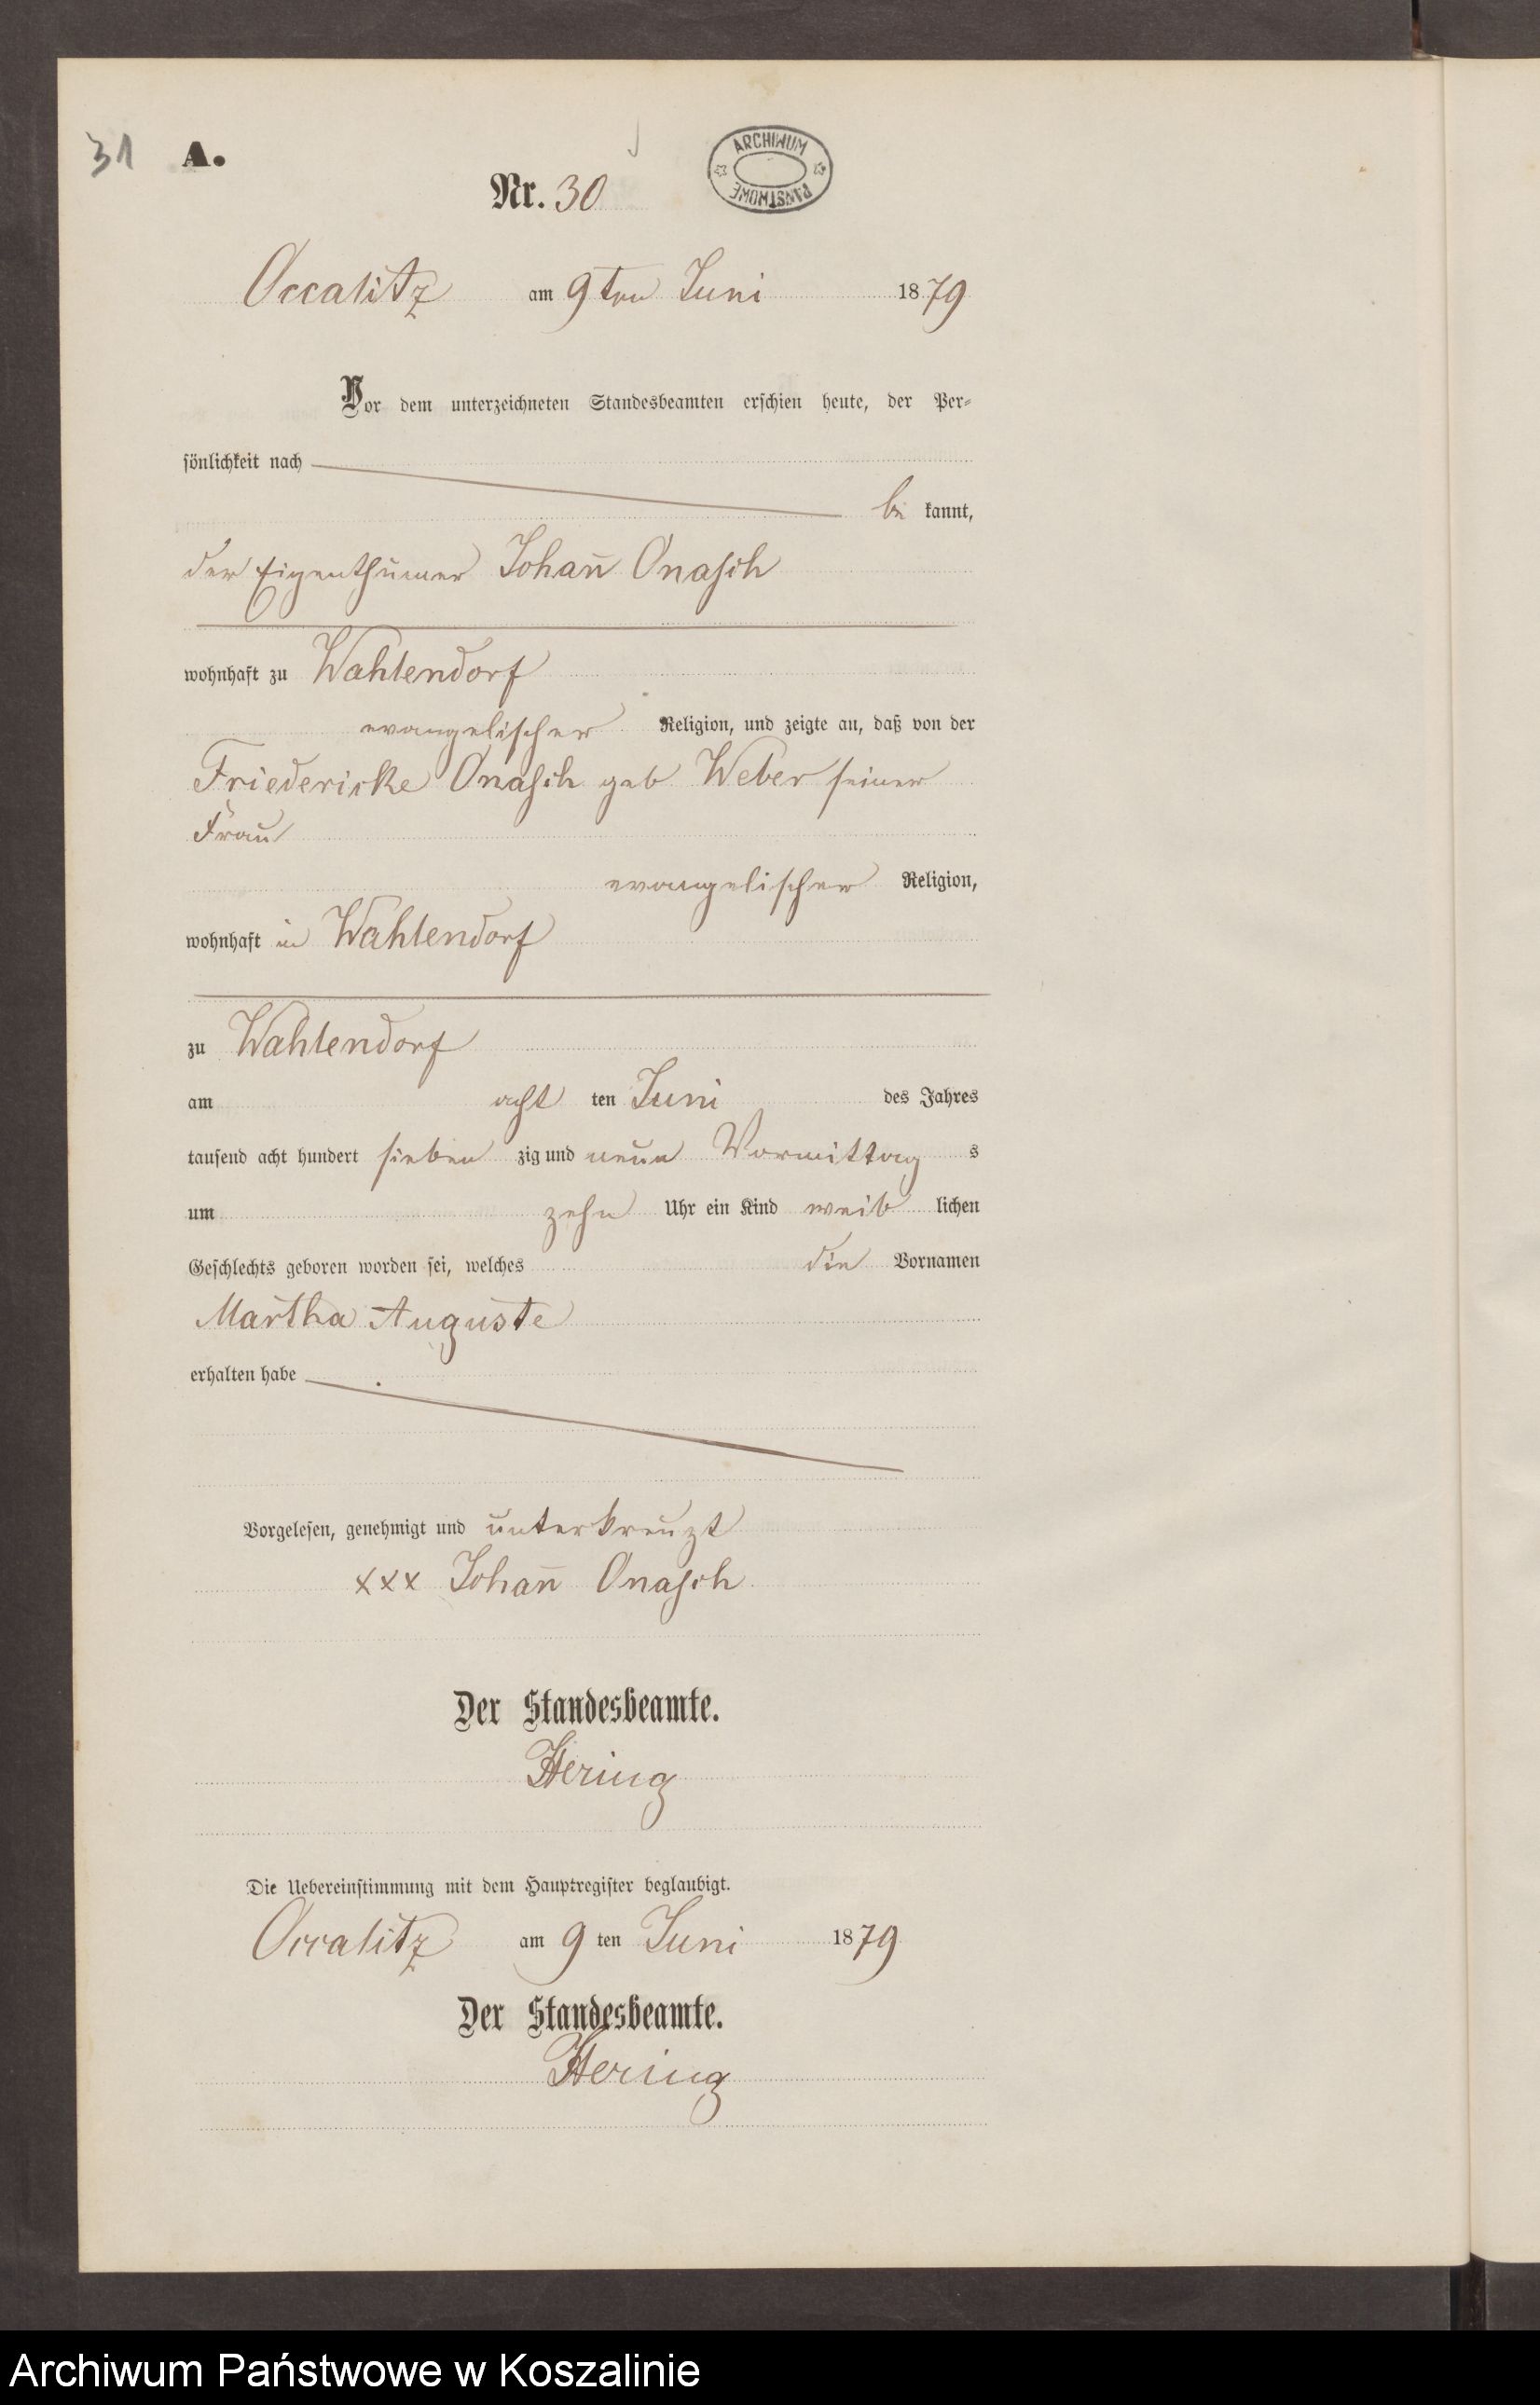 31 A.
ARCHIWUM
PAŃSTWOWE
Nr. 30
Occalitz am 9ten Juni 1879
Vor dem unterzeichneten Standesbeamten erschien heute, der Per-
sönlichkeit nach
be kannt,
der Eigenthümer Johan̄ Onasch
wohnhaft zu Wahlendorf
evangelischer Religion, und zeigte an, daß von der
Friedericke Onasch geb Weber seiner
Frau
evangelischer Religion,
wohnhaft in Wahlendorf
zu Wahlendorf
am acht ten Juni des Jahres
tausend acht hundert sieben zig und neun Vormittag s
um zehn Uhr ein Kind weib lichen
Geschlechts geboren worden sei, welches die Vornamen
Martha Auguste
erhalten habe
Vorgelesen, genehmigt und unterkreuzt
xxx Johan̄ Onasch
Der Standesbeamte.
Hering
Die Uebereinstimmung mit dem Hauptregister beglaubigt.
Occalitz am 9 ten Juni 1879
Der Standesbeamte.
Hering
Archiwum Państwowe w Koszalinie